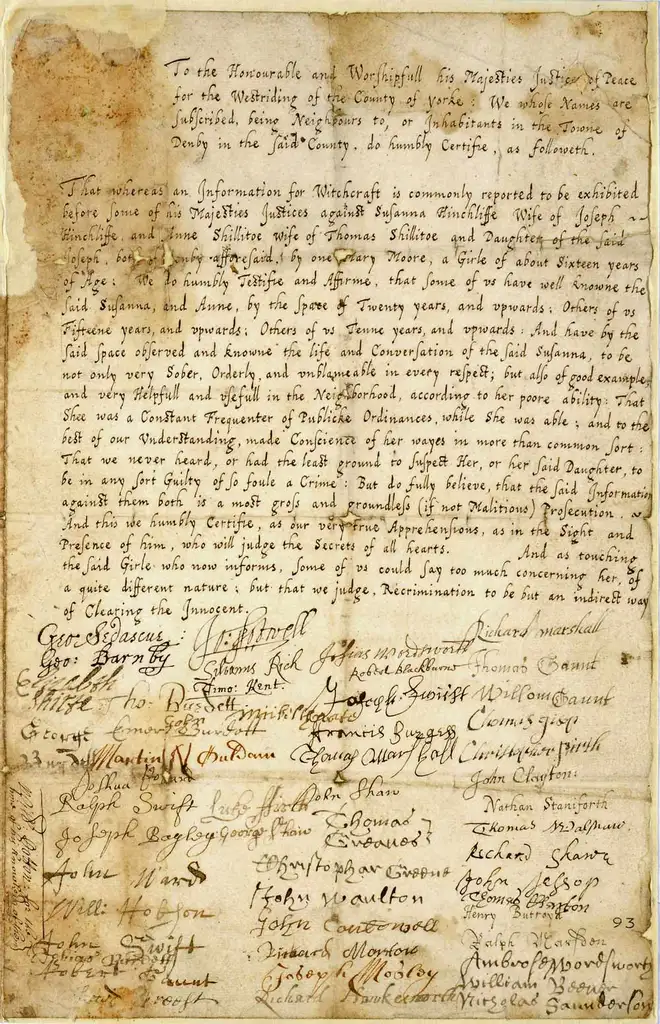 To the Honourable and Worshipfull his Majesties Justices of Peace
for the Westriding of the County of Yorke: We whose Names are
subscribed, being Neighbours to, or Inhabitants in the Towne of
Denby in the said County, do humbly Certifie, as followeth.
That whereas an Information for Witchcraft is commonly reported to be exhibited
before some of his Majesties Justices against Susanna Hinchliffe Wife of Joseph
Hinchliffe, and Anne Shillitoe Wife of Thomas Shillitoe and Daughter of the said
Joseph, both of Denby afforesaid, by one Mary Moore, a Girle of about Sixteen years
of Age: We do humbly Testifie and Affirme, that some of us have well knowne the
said Susanna, and Anne, by the space of Twenty years, and vpwards; Others of vs
Fifteene years, and vpwards; Others of vs Tenne years, and vpwards: And have by the
said space observed and knowne the life and Conversation of the said Susanna, to be
not only very Sober, Orderly, and vnblameable in every respect; but also of good example,
and very Helpfull and vsefull in the Neighborhood, according to her poore ability: That
Shee was a Constant Frequenter of Publicke Ordinances, while She was able; and to the
best of our Understanding, made Conscience of her wayes in more than common sort:
That we never heard, or had the least ground to suspect Her, or her said Daughter, to
be in any sort Guilty of so foule a Crime: But do fully believe, that the said Information
against them both is a most gross and groundless (if not Malitious) Prosecution.
And this we humbly Certifie, as our very true Apprehensions, as in the Sight and
Presence of him, who will judge the Secrets of all hearts. And as touching
the said Girle who now informs, some of us could say too much concerning her, of
a quite different nature; but that we judge, Recrimination to be but an indirect way
of Clearing the Innocent.
Richard Marshall
Geo: Barnby Silvanus Rich Josias Wordsworth Thomas Gaunt
Timo: Kent. Robert Blackburne
Tho: Burdett Joseph Swift William Gaunt
George Burdett Francis Burgess
Martin Thomas Marshall Christopher Firth
Joshua John Clayton:
Ralph Swift Luke Firth John Shaw Nathan Staniforth
Joseph Bagley George Shaw Thomas Greaves Thomas
Richard Shawe
John Ward Christophar Greene John Jessop
John Waulton Thomas
Willi Hobson Henry 93
John Ralph Marsden
John Swift Richard Morton Ambrose Wordsworth
Robert Gaunt Joseph Mosley William
Richard Nicholas Saunderson